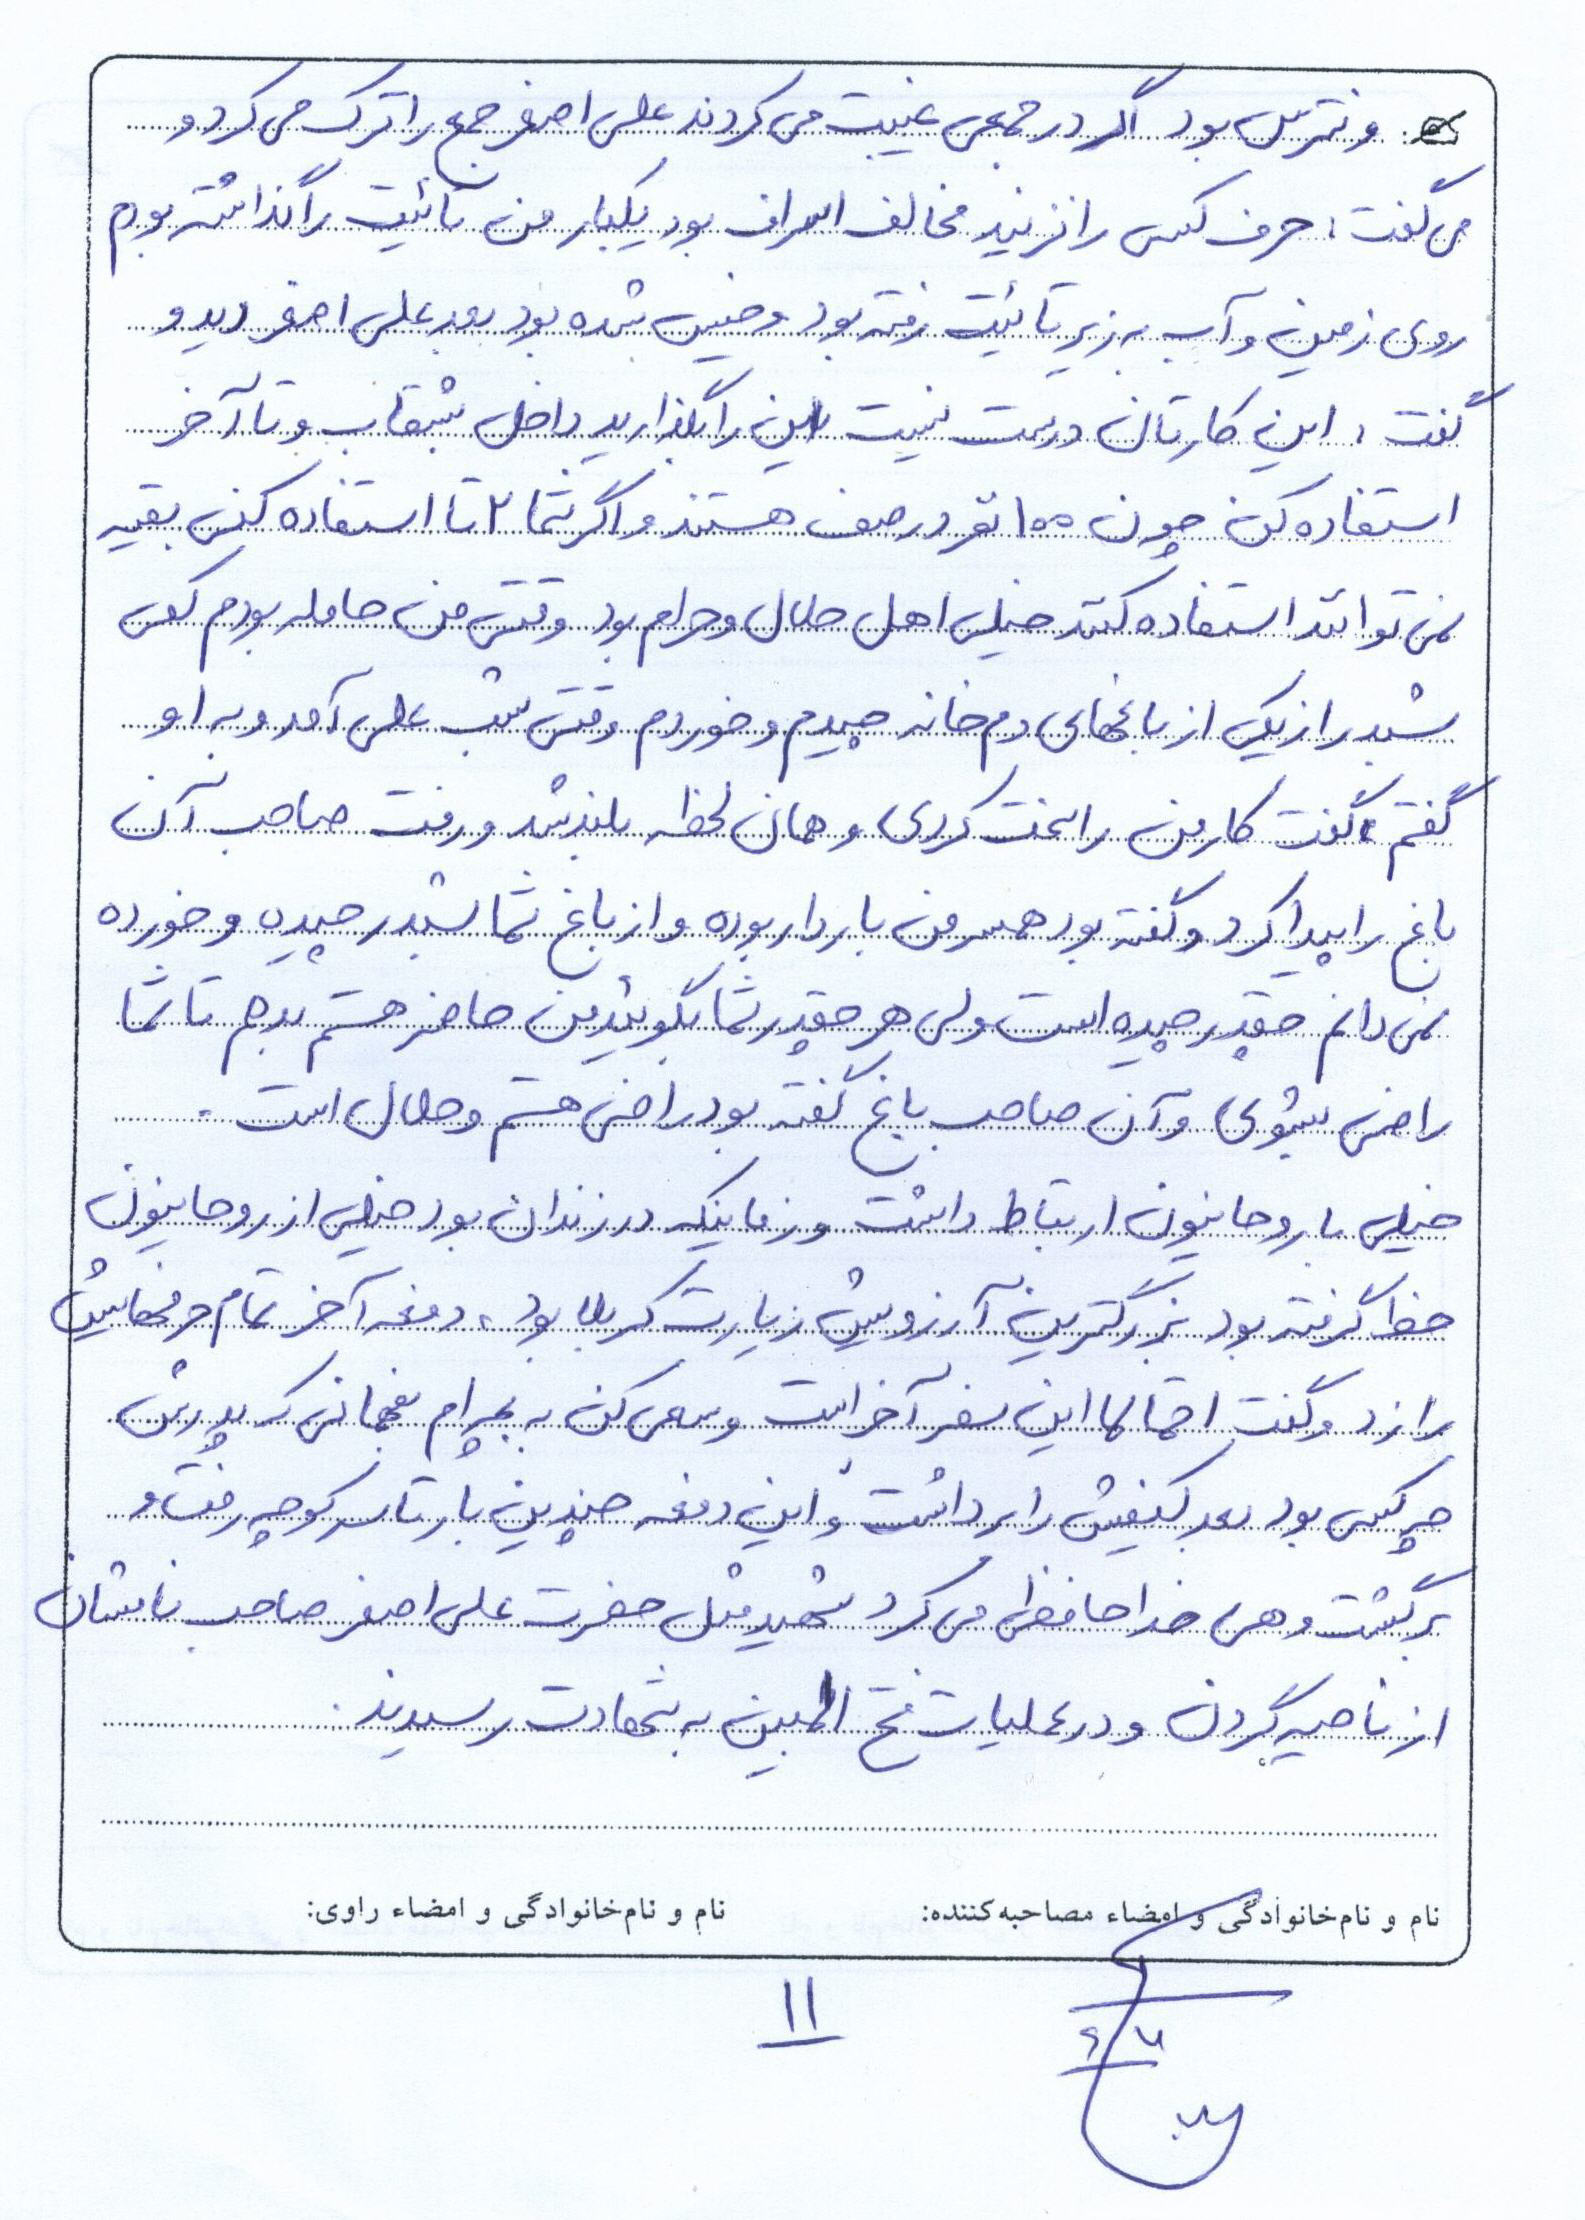 و نترس بود اگر در جمعی غیبت می کردند علی اصغر جمع را ترک می کرد و
می گفت: حرف کسی را نزنید مخالف اسراف بود یکبار من تائیت را گذاشته بودم
روی زمین و آب به زیر تائیت رفته بود و خیس شده بود بعد علی اصغر دید و
گفت: این کارتان درست نیست این را بگذارید داخل بشقاب و تا آخر
استفاده کن چون ۱۰۰ نفر در صف هستند و اگر شما ۲ تا استفاده کنی بقیه
نمی توانند استفاده کنند خیلی اهل حلال و حرام بود وقتی من حامله بودم کمی
شبدر از یکی از باغهای دم خانه چیدم و خوردم وقتی شب علی آمد و به او
گفتم گفت کار من را سخت کردی و همان لحظه بلند شد و رفت صاحب آن
باغ را پیدا کرد و گفته بود همسر من باردار بوده و از باغ شما شبدر چیده و خورده
نمی دانم چقدر چیده است ولی هر چقدر شما بگوئید من حاضر هستم بدهم تا شما
راضی بشوی و آن صاحب باغ گفته بود راضی هستم و حلال است .
خیلی با روحانیون ارتباط داشت و زمانیکه در زندان بود خیلی از روحانیون
خط گرفته بود بزرگترین آرزویش زیارت کربلا بود ، دفعه آخر تمام حرفهایش
را زد و گفت احتمالا این سفر آخر است و سعی کن به بچه ام بفهمانی که پدرش
چه کسی بود بعد کیفش را برداشت و این دفعه چندین بار تا سر کوچه رفت و
برگشت و هی خداحافظی می کرد شهید مثل حضرت علی اصغر صاحب نامشان
از ناحیه گردن و در عملیات فتح المبین به شهادت رسیدند .
نام و نام‌خانوادگی و امضاء مصاحبه‌کننده: نام و نام‌خانوادگی و امضاء راوی:
۱۱